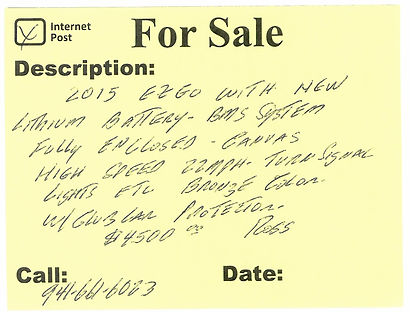 Internet
Post
For Sale
Description:
2015 EZGO WITH NEW
LITHIUM BATTERY - BMS SYSTEM
FULLY ENCLOSED - CANVAS
HIGH SPEED 22MPH - TURN SIGNAL
LIGHTS ETC BRONZE COLOR.
W/ CLUB CAR PROTECTOR.
$4500 00 ROSS
Call:
Date:
941-661-6023